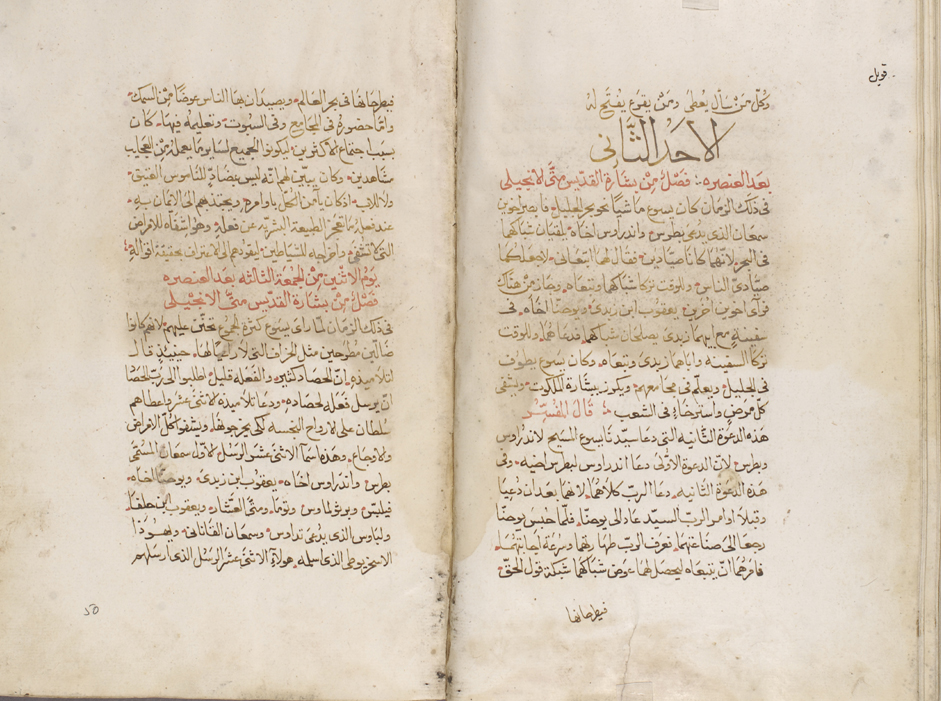 قوبل
وكلّ مَن سأل يُعطى ومَن يقرع يُفتَح لهُ
الاحَد الثَّانى
بعد العنصره فصْلٌ مِنْ بشارة القديس متّى الانجيلى
فى ذلك الزمان كان يسوع ماشيًا نحو بحر الجليل فابصر اخوين
سمعان الذى يدعى بطرس واندراوس اخاه يلقيان شباكهما
فى البحر لانّهما كانا صيّادين فقال لهما اتبعانى لاجعلكما
صيّادى الناس وللوقت تركا شباكهما وتبعاه وجاز من هناك
فرأى اخوين اخرين يعقوب ابن زبدى ويوحنّا اخاه فى
سفينةٍ مع ابيهما زبدى يصلحان شباكهما فدعاهما وللوقت
تركا السفينه واباهما زبدى وتبعاه وكان يسوع يطوف
فى الجليل ويعلّم فى مجامعهم ويكرز ببشارة الملكوت ويشفى
كلّ مرضٍ واسترخاءٍ فى الشعب قال المفسّر
هذه الدعوة الثانيه التى دعا سيّدنا يسوع المسيح لاندراوس
وبطرس لانّ الدعوة الاولى دعا اندراوس لبطرس اخيه وفى
هذه الدعوة الثانيه دعا الربّ كلاهما لانهما بعد ان دُعيا
وقبلا اوامر الربّ السيّد عاد الى يوحنّا فلمّا حبس يوحنّا
رجعا الى صناعتهما فعرف الربّ طهارتهما وسرعة اجابتهما
فامرهما انّ يتبعاه ليحصل لهما عوض شباكهما شبكة قول الحقّ
فيطرحانها
فيطرحانها فى بحر العالم ويصيدان بها الناس عوضًا مِن السمك
وامّا حضوره فى المجامع وفى السبوت وتعليمه فيها كان
بسبب اجتماع الاكثرين ليكونوا الجميع لساير ما يعمل من العجايب
مشاهدين وكان يبيّن لهم انّه ليس بمضادٍّ للناموس العتيق
ولا للاب اذ كان يامر الحلّ باوامره ويجذبهم الى الايمان به
عند فعله ما تعجز الطبيعة البشريّه عن فعله وهو اشفاه للامراض
التى لا تشفى واخراجه للشياطين ليقودهم الى الاعتراف بحقيقة اقواله
يوم الاثنين من الجمعة الثالثه بعد العنصره
فصْلٌ مِنْ بشارة القدّيس متّى الانجيلى
فى ذلك الزمان لمّا راى يسوع كثرة الجموع تحنّن عليهم لانّهم كانوا
ضالّين مطروحين مثل الخراف التى لا راعى لها حينيذٍ قال
لتلاميذه انّ الحصاد كثير والفعله قليل اطلبوا الى ربّ الحصاد
ان يرسل فعله لحصاده ودعا تلاميذه الاثنى عشر واعطاهم
سلطان على الارواح النجسه لكى يخرجوها ويشفوا كلّ الامراض
والاوجاع وهذه اسما الاثنى عشر الرسل الاوّل سمعان المسمّى
بطرس واندراوس اخاه يعقوب بن زبدى ويوحنّا اخاه
فيلبّس وبرثولماوس وتوما ومتّى العشّار ويعقوب بن حلفا
ولباوس الذى يدعى تداوس وسمعان القنانانى ويهوذا
الاسخريوطى الذى اسلمه هولاء الاثنى عشر الرسل الذى ارسلهم
50